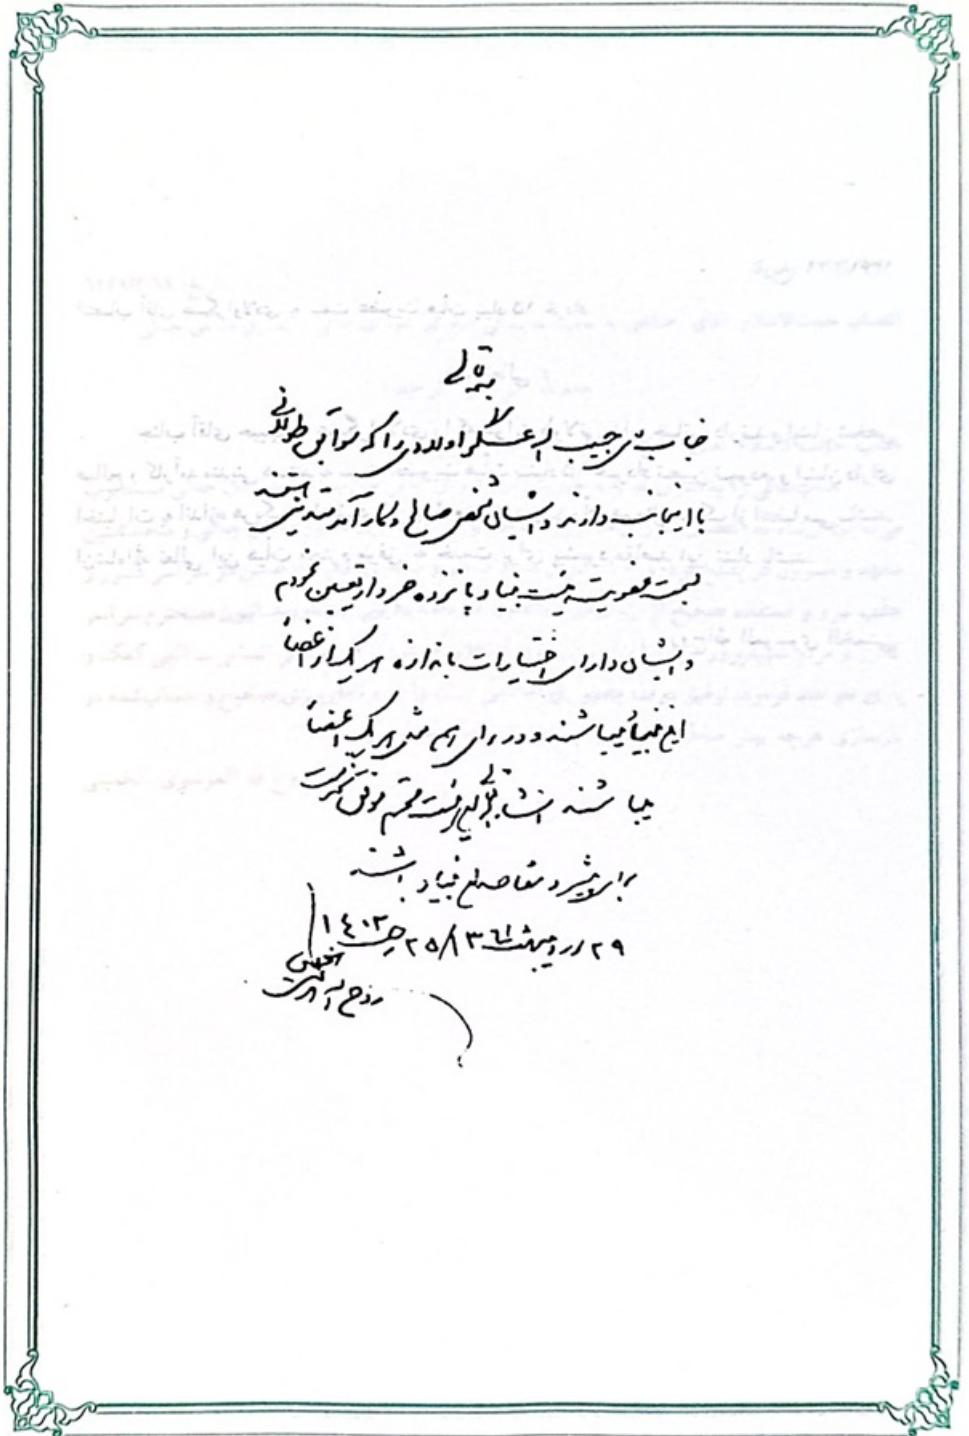 بسمه تعالی
جناب آقای حبیب الله عسکر اولادی را که سوابق طولانی
با اینجانب دارند و ایشان شخص صالح و کارآمد متدینی هستند
بسمت عضویت هیئت بنیاد پانزده خرداد تعیین نمودم
و ایشان دارای اختیارات باندازه هر یک از اعضاء
این بنیاد میباشند و در رای هم مثل هر یک اعضاء
میباشند انشاء الله تعالی این هیئت محترم موفق بخدمت
برای پیشبرد مقاصد این بنیاد باشند
۲۹ اردیبهشت ۱۳۶۱ / ۲۵ رجب ۱۴۰۲
روح الله الموسوی الخمینی